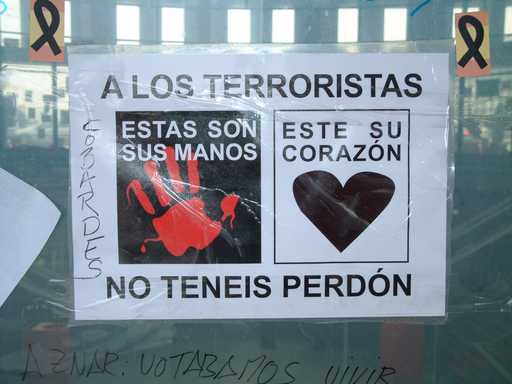 A LOS TERRORISTAS
ESTAS SON
SUS MANOS
ESTE SU
CORAZÓN
NO TENEIS PERDÓN
COBARDES
AZNAR: VOTABAMOS VIVIR